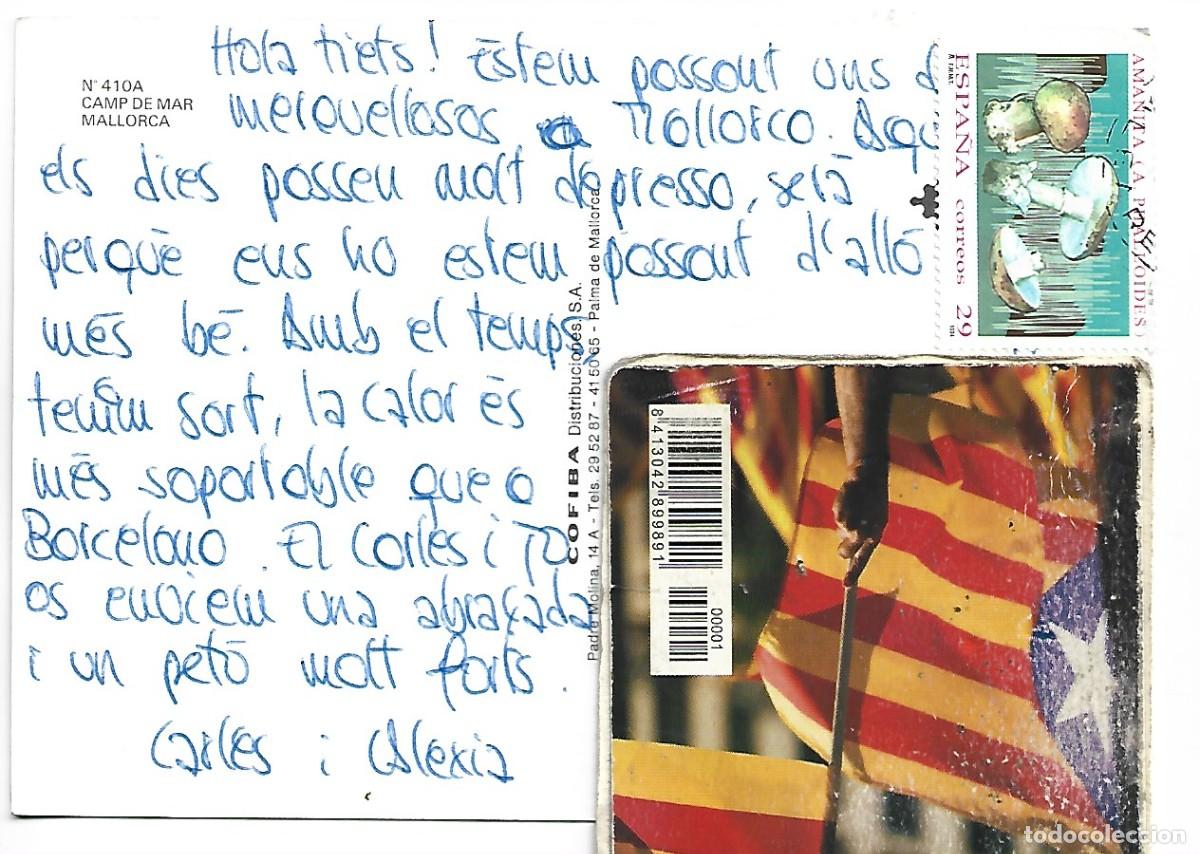 Nº 410A
CAMP DE MAR
MALLORCA
Hola tiets! Estem passant uns d
meravellosos a Mallorca. Aqu
els dies passen molt de pressa, serà
perquè ens ho estem passant d'allò
més bé. Amb el temps
tenim sort, la calor és
més soportable que a
Barcelona. El Carles i jo
os enviem una abraçada
i un petó molt forts.
Carles i Alexia
COFIBA Distribuciones, S.A.
Padre Molina, 14 A - Tels. 29 52 87 - 41 50 65 - Palma de Mallorca
ESPAÑA correos 29
AMANITA
8413042899891
00001
todocoleccion